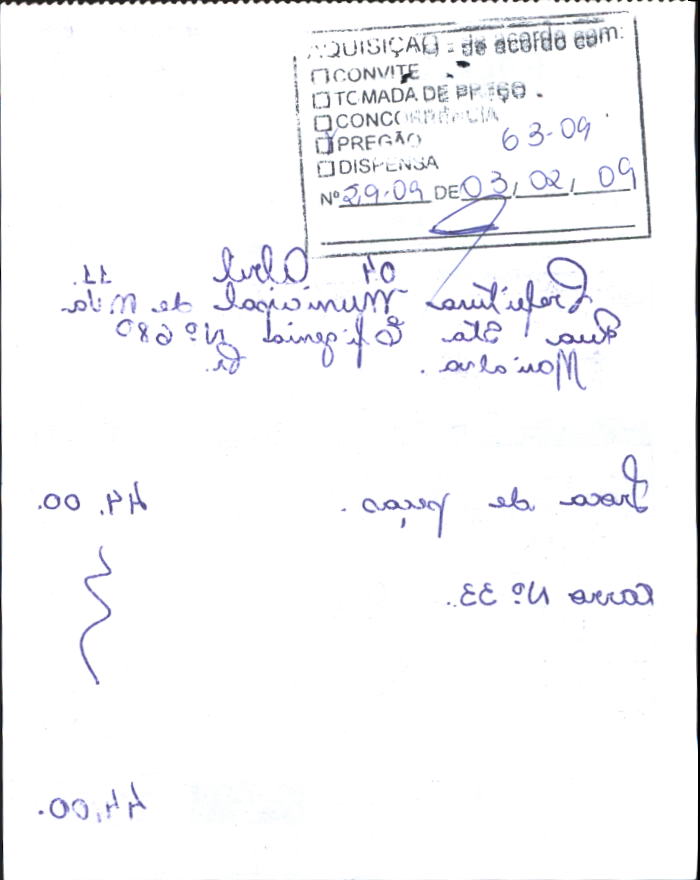 AQUISIÇÃO - de acordo com:
CONVITE
TOMADA DE PREÇO
CONCORRÊNCIA
PREGÃO 63-09
DISPENSA
Nº 29-09 DE 03/02/09
04 Abril 11.
Prefeitura Municipal de M.Va
Rua Sta Efigenia Nº 680
Marialva. Pr.
Troca de peças. 44,00.
Carro Nº 33.
44,00.